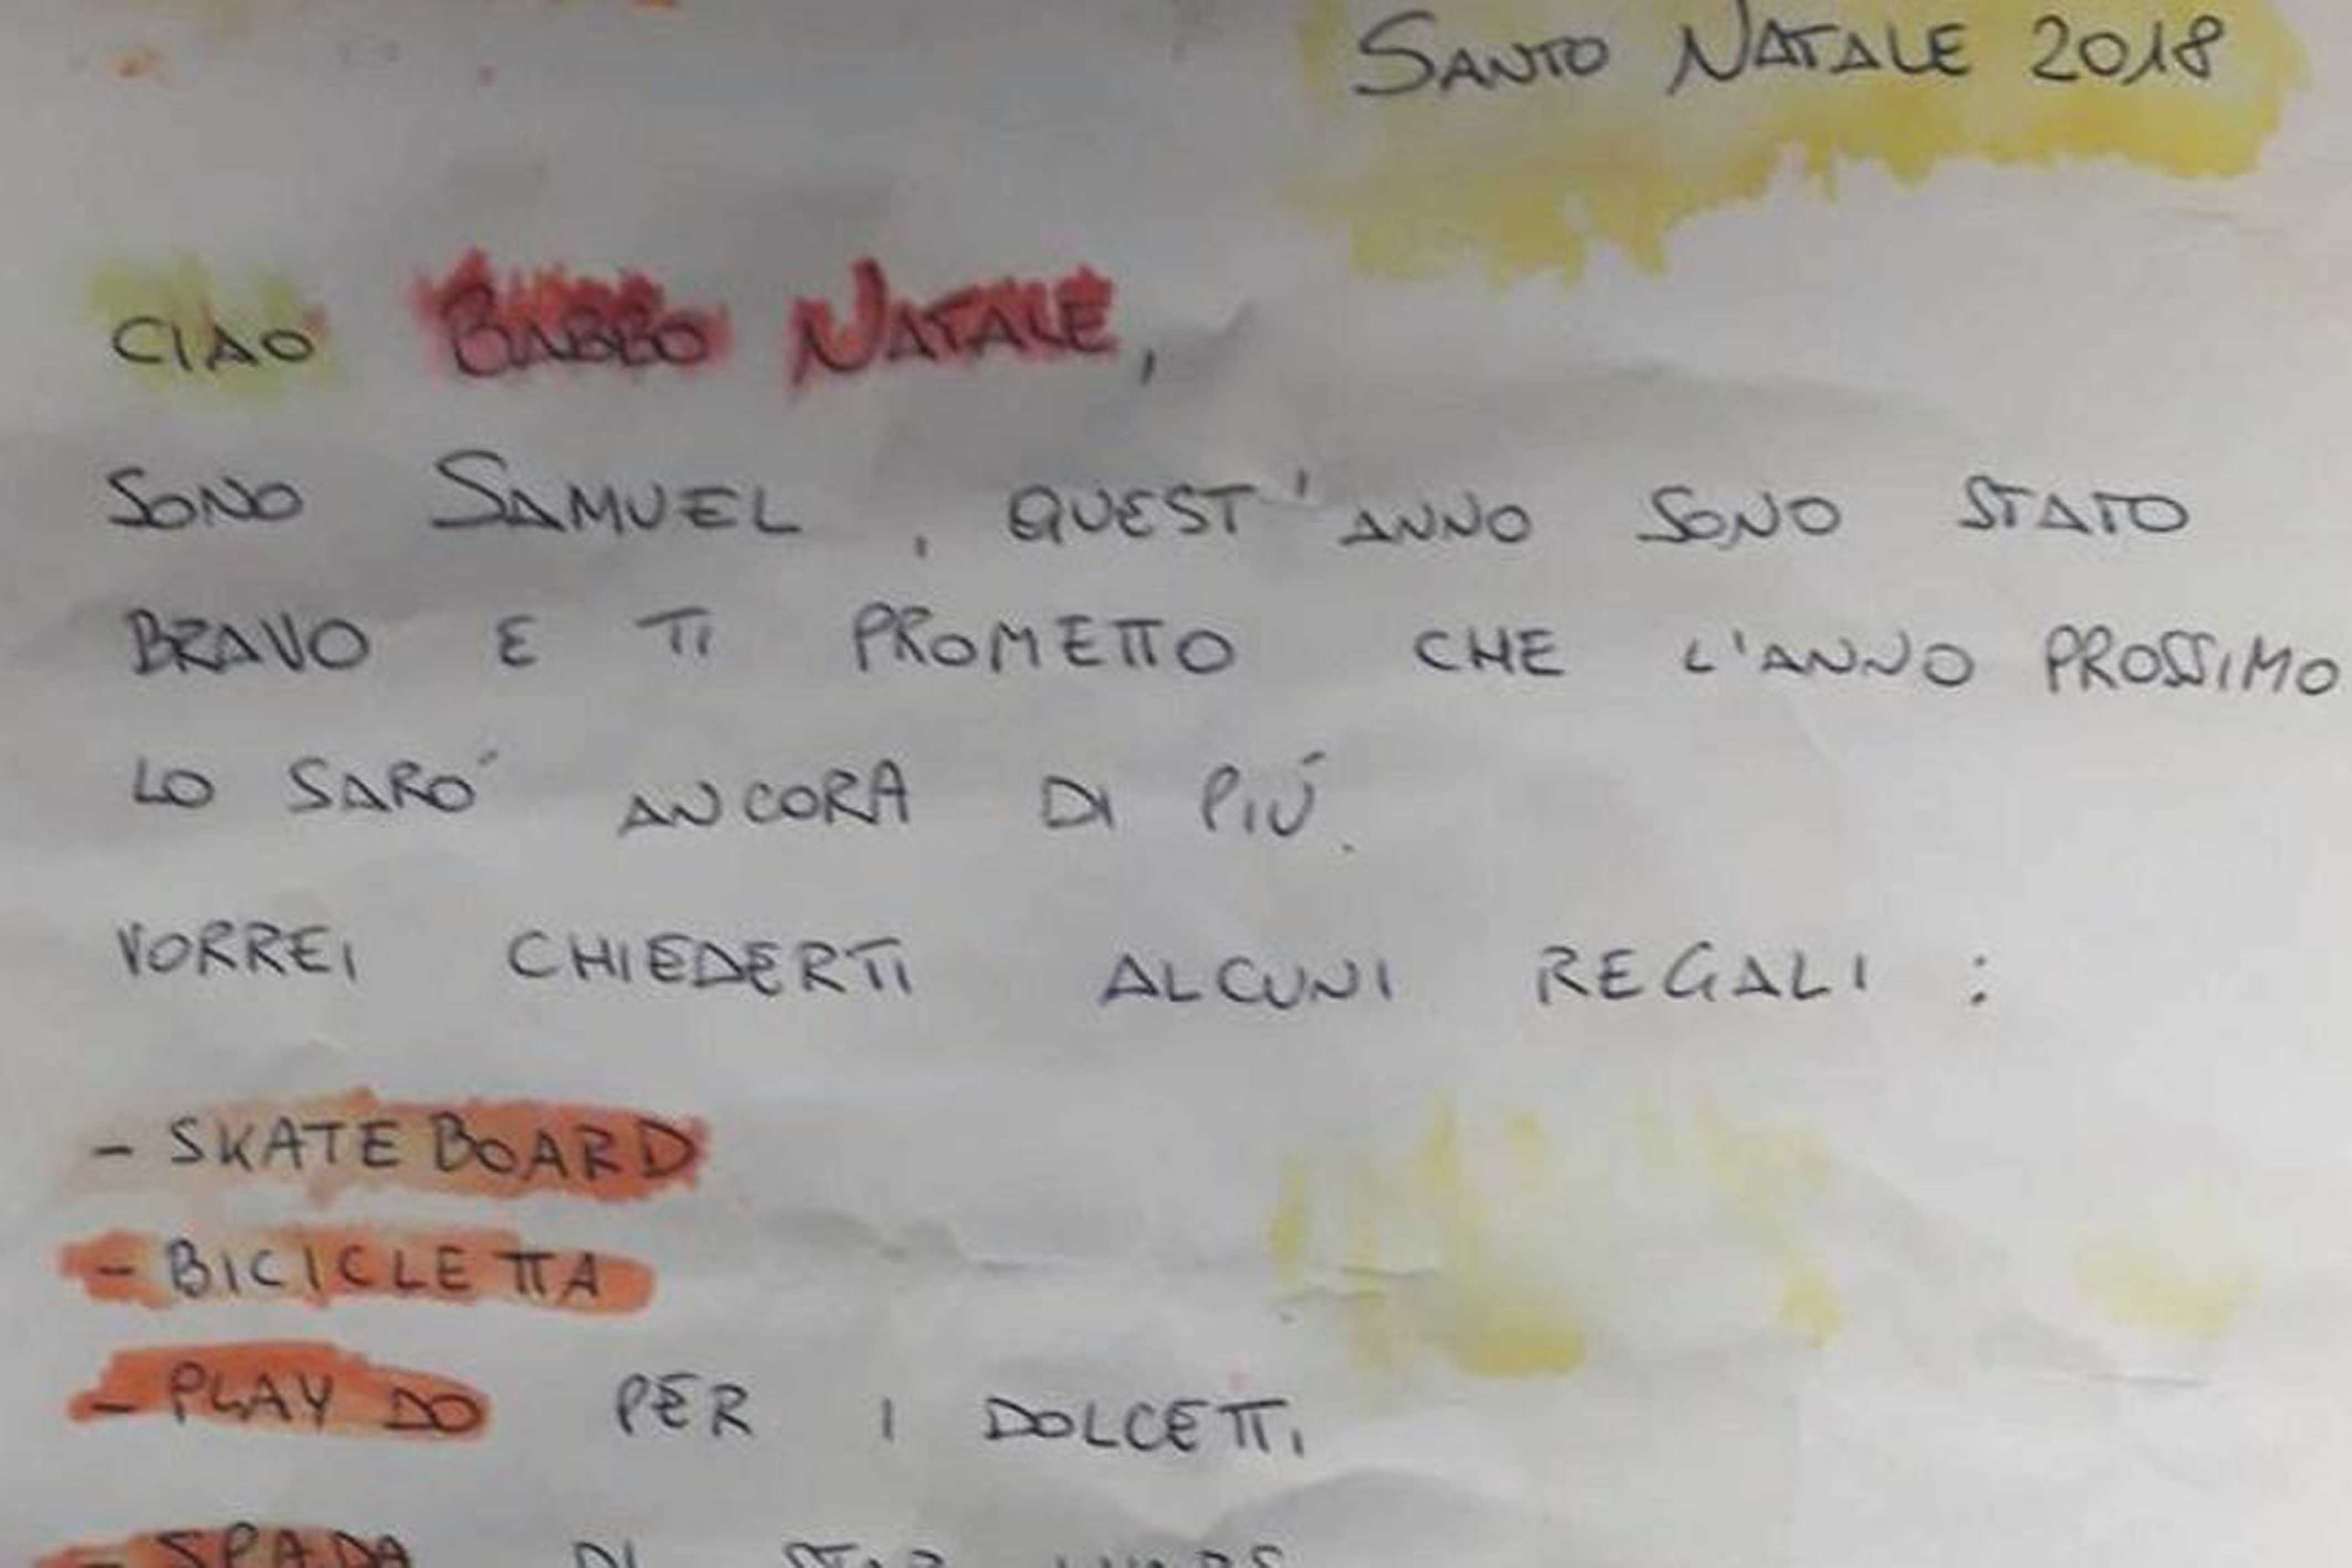 SANTO NATALE 2018
CIAO BABBO NATALE,
SONO SAMUEL, QUEST'ANNO SONO STATO
BRAVO E TI PROMETTO CHE L'ANNO PROSSIMO
LO SARO´ ANCORA DI PIÚ.
VORREI CHIEDERTI ALCUNI REGALI :
- SKATE BOARD
- BICICLETTA
- PLAY DO PER I DOLCETTI
- SPADA DI STAR WARS